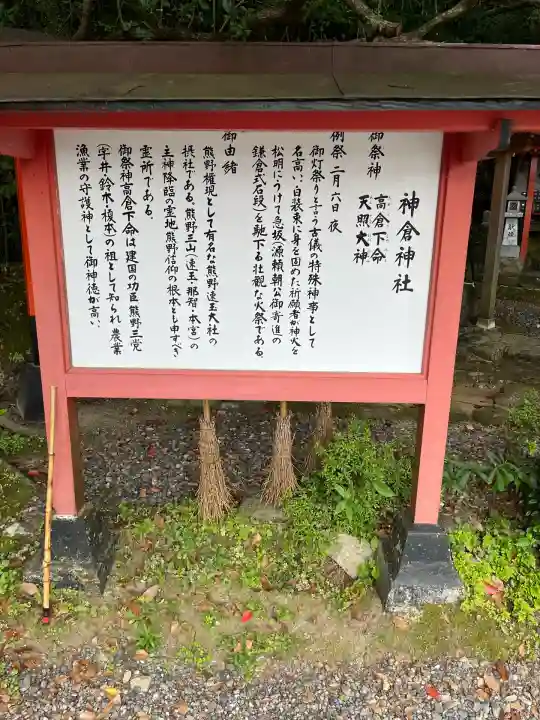 神倉神社
御祭神 高倉下命
天照大神
例祭 二月六日夜
御灯祭りと言う古儀の特殊神事として
名高い、白装束に身を固めた祈願者が神火を
松明にうけて急坂(源頼朝公御寄進の
鎌倉式石段)を馳下る壮観な火祭である。
御由緒
熊野権現として有名な熊野速玉大社の
摂社である。熊野三山(速玉・那智・本宮)の
主神降臨の霊地熊野信仰の根本とも申すべき
霊所である。
御祭神高倉下命は建国の功臣熊野三党
(宇井・鈴木・榎本)の祖として知られ農業
漁業の守護神として御神徳が高い、